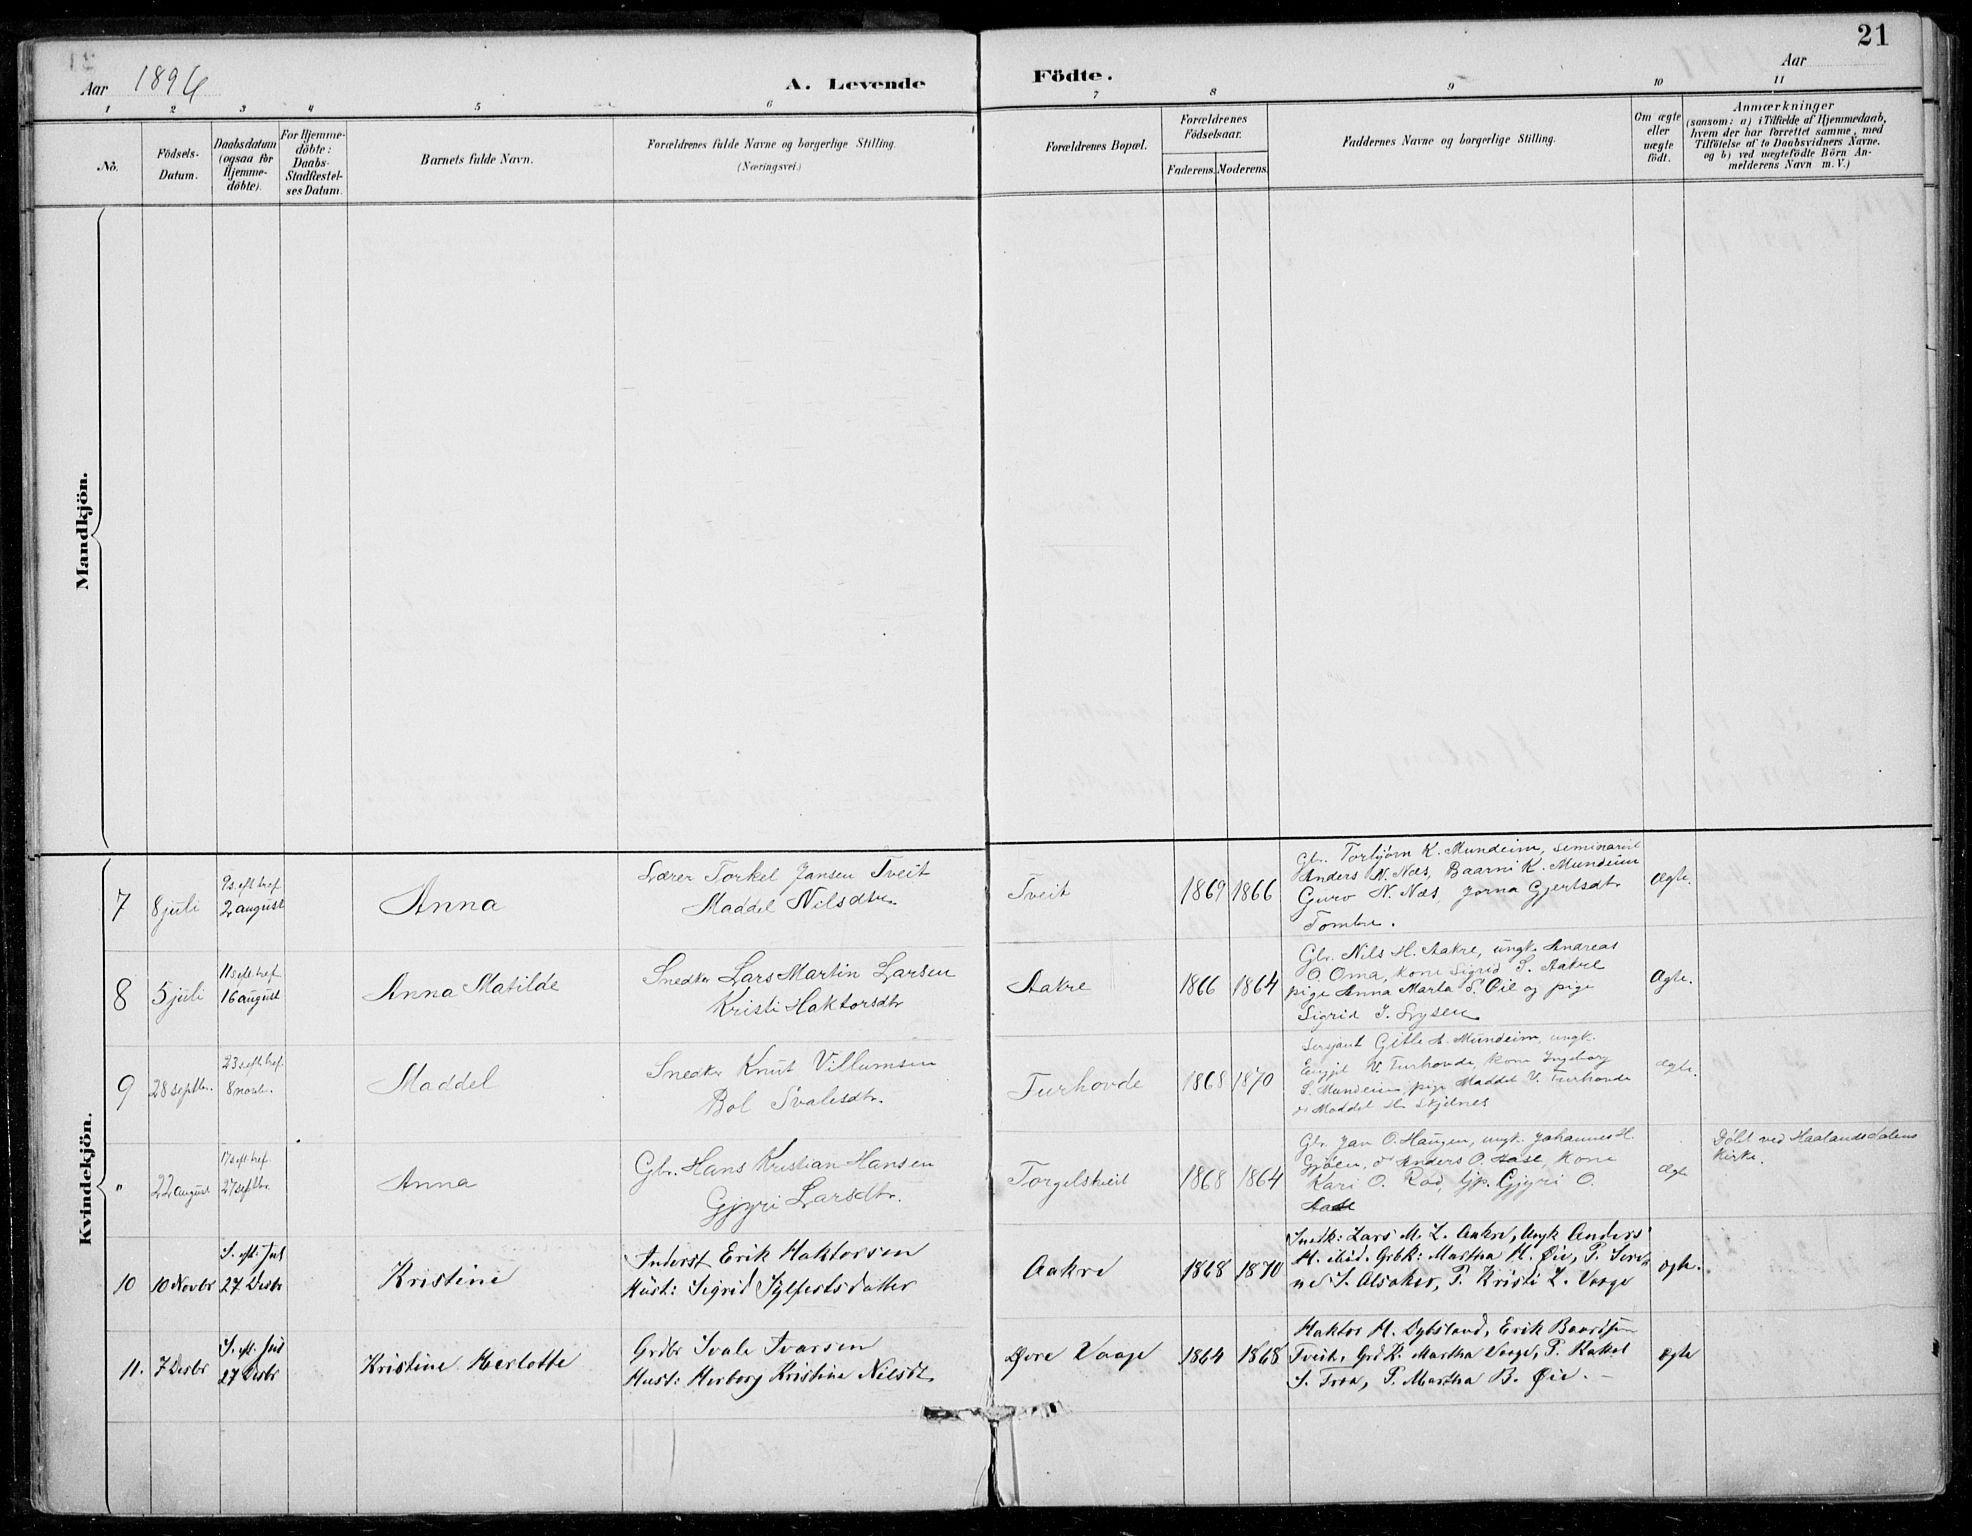 21
Aar 1896
A. Levende Födte.
Aar
1 2 3 4 5 6 7 8 9 10 11
No.
Födsels-Datum.
Daabsdatum (ogsaa for Hjemmedöbte).
For Hjemmedöbte: Daabs-Stadfæstelses Datum.
Barnets fulde Navn.
Forældrenes fulde Navne og borgerlige Stilling.
(Næringsvei.)
Forældrenes Bopæl.
Forældrenes Födselsaar.
Faderens. Moderens.
Faddernes Navne og borgerlige Stilling.
Om ægte eller uægte födt.
Anmærkninger
(saasom: a) i Tilfælde af Hjemmedaab, hvem der har forrettet samme, med Tilföielse af to Daabsvidners Navne, og b) ved uægtefödte Börn Anmelderens Navn m. V.)
Mandkjön.
Kvindekjön.
7 8 juli
9 s. eft. tref.
2 august
Anna
Lærer Torkel Jansen Tveit
Maddel Nilsdtr.
Tveit 1869 1866
Gbr. Torbjørn K. Mundeim, seminarist
Anders N. Næs, Baarni K. Mundeim
Guro N. Næs, Jorna Gjertsdtr.
Tombre.
Ægte.
8 5 juli
11 s eft tref
16 august
Anna Matilde
Snedker Lars Martin Larsen
Kristi Haktorsdtr
Aakre 1866 1864
Gbr. Nils H. Aakre, ungk. Andreas
O. Oma, kone Sigrid S. Aakre
pige Anna Marta S. Øie og pige
Sigrid J. Lysen
Ægte.
9 28 septbr.
23 s eft tref.
8 novbr.
Maddel
Snedker Knut Villumsen
Bol Svalesdtr.
Furhovde 1868 1870
Sersjant Gitle A. Mundeim, ungk.
V. Furhovde, kone Ingeborg
S. Mundeim, pige Maddel V. Furhovde
Maddel H. Skjelnes
Ægte.
" 22 august
17 s. eft. tref.
27 septbr.
Anna
Gbr. Hans Kristian Hansen
Gjyri Larsdtr.
Torgelstveit 1868 1864
Gbr. Jan O. Haugen, ungk. Johannes H.
Gjøen, Anders O. Aase, kone
Kari O. Rød, Gjyri O.
Aase
Ægte
Døbt ved Haalandsdalens
Kirke.
10 10 Novbr
S. eft. Jul
27 Decbr
Kristine
Inderst Erik Haktorsen
Hust: Sigrid Sjlfestsdatter
Aakre 1868 1870
Snedk: Lars M. L. Aakre, Ungk Anders
H. Grbk: Martha H. Øie, P. Seri-
ne S. Alsaker, P. Kristi L. Vaage
ægte.
11. 7 Decbr
S. eft. Jul
27 Decbr
Kristine Herlotte
Grdbr Svale Ivarsen
Hust: Herborg Kristine Nilsdt.
Øvre Vaage 1864 1868
Haktor H. Dybsland, Erik Baardsen
Tveit, Grd K. Martha Vaage, P. Rakel
S. Troa, P. Martha B. Øie. –
ægte